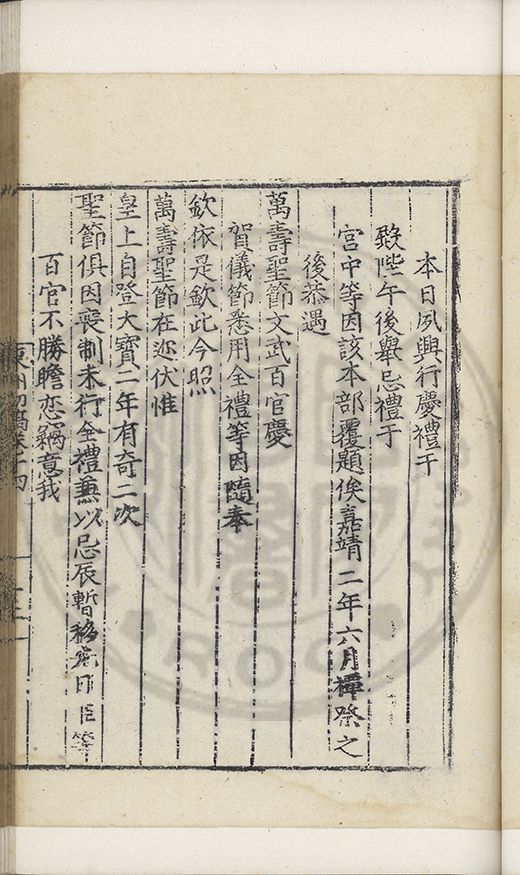 本日夙興行慶禮于
殿陛午後舉忌禮于
宮中等因該本部覆題俟嘉靖二年六月禫祭之
後恭遇
萬壽聖節文武百官慶
賀儀節悉用全禮等因隨奉
欽依是欽此今照
萬壽聖節在邇伏惟
皇上自登大寶二年有奇二次
聖節俱因喪制未行全禮兼以忌辰暫移日臣等
百官不勝瞻戀竊意我
東洲初稿卷十四